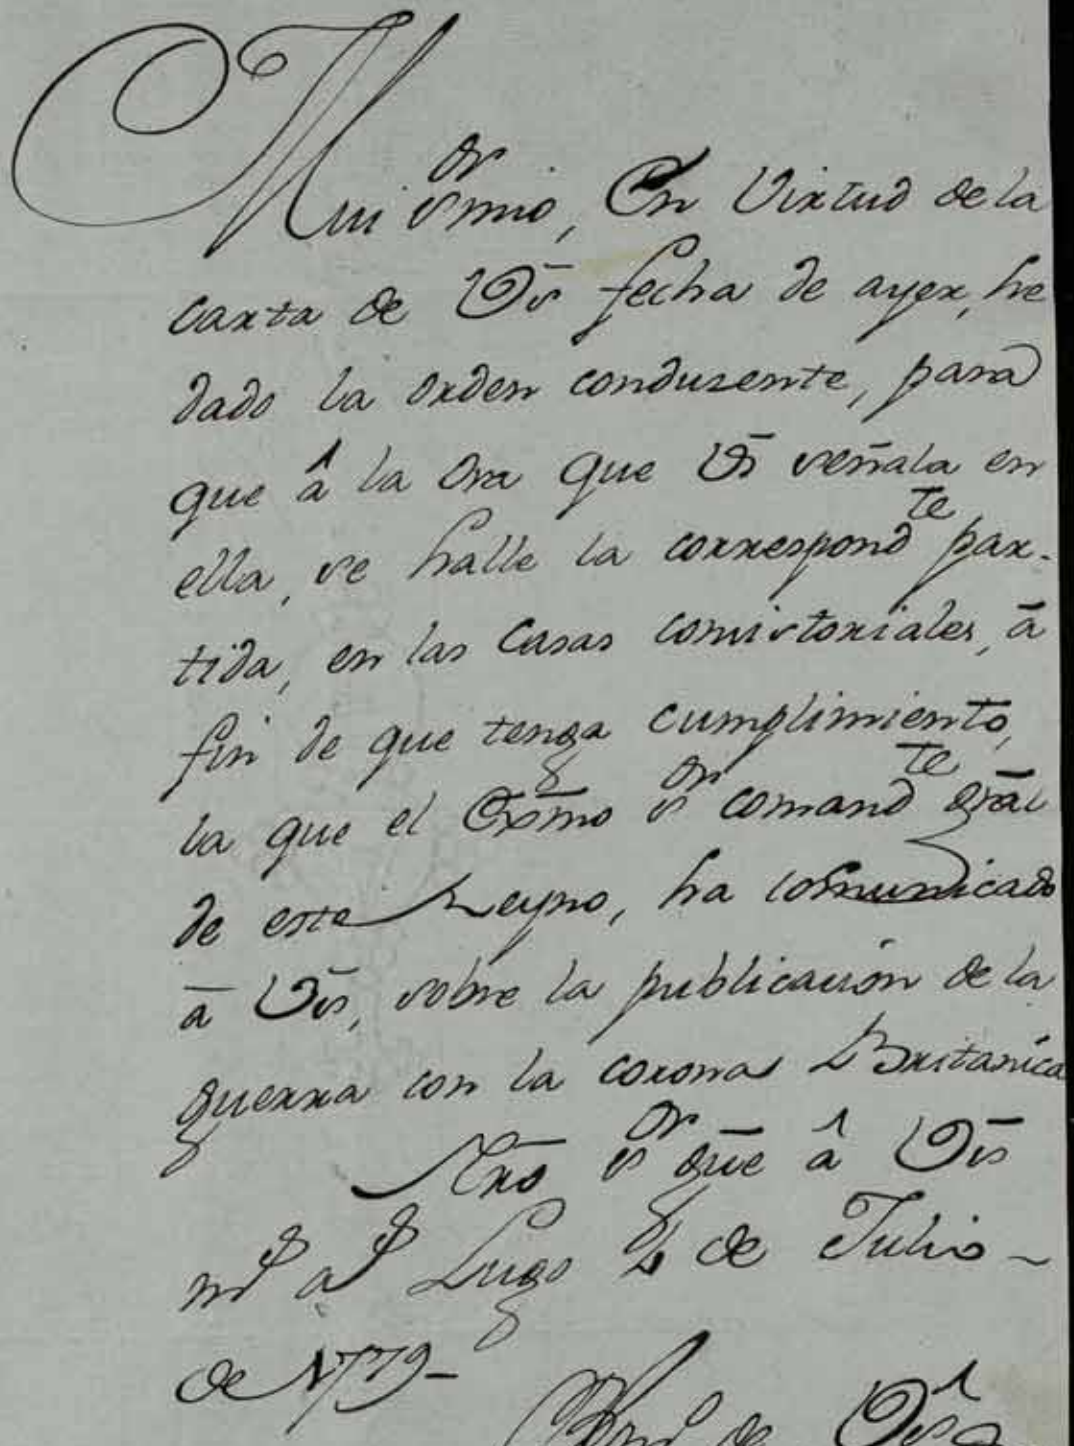 Mui Sor mio, En Virtud de la
carta de VS fecha de ayer, he
dado la orden condusente, para
que â la ora que VS señala en
ella, se halle la correspondte par-
tida, en las Casas consistoriales, ā
fin de que tenga cumplimiento,
la que el Exmo Sor comandte grāl
de este Reyno, ha comunicado
ā VS, sobre la publicacion de la
guerra con la corona Britanica
Nro Sor que â VS
ms as Lugo de Julio -
de 1779-
de